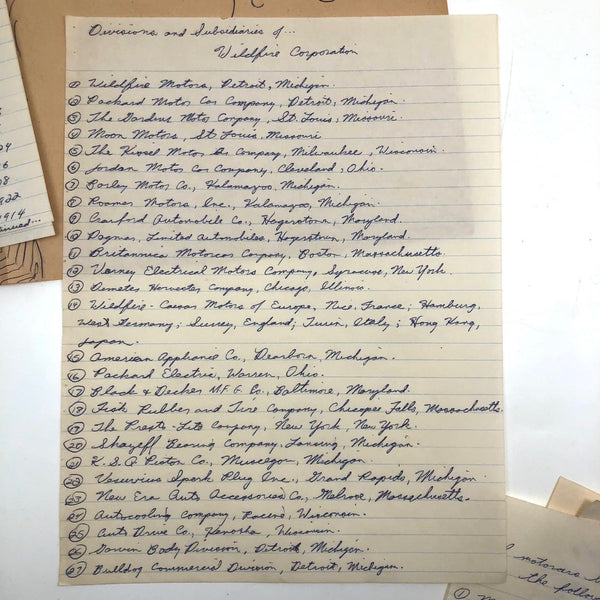 Divisions and Subsidiaries of...
Wildfire Corporation
① Wildfire Motors, Detroit, Michigan.
② Packard Motor Car Company, Detroit, Michigan.
③ The Gardens Moto Company, St. Louis, Missouri.
④ Moon Motors, St Louis, Missouri
⑤ The Kissel Motor Car Company, Milwaukee, Wisconsin.
⑥ Jordan Motor Car Company, Cleveland, Ohio.
⑦ Barley Motor Co., Kalamazoo, Michigan.
⑧ Roamer Motors, Inc., Kalamazoo, Michigan.
⑨ Crawford Automobile Co., Hagerstown, Maryland.
⑩ Dagmar, Limited Automobiles, Hagerstown, Maryland.
⑪ Britannica Motorcar Company, Boston, Massachusetts.
⑫ Varney Electrical Motors Company, Syracuse, New York.
⑬ Demeter Harvester Company, Chicago, Illinois.
⑭ Wildfire-Caesar Motors of Europe, Nice, France; Hamburg,
West Germany; Surrey, England; Turin, Italy; Hong Kong,
Japan.
⑮ American Appliance Co., Dearborn, Michigan.
⑯ Packard Electric, Warren, Ohio.
⑰ Black & Decker M.F.G. Co., Baltimore, Maryland.
⑱ Fisk Rubber and Tire Company, Chicopee Falls, Massachusetts.
⑲ The Prest-Lite Company, New York, New York.
⑳ Bearing Company, Lansing, Michigan.
㉑ K.S.G. Piston Co., Muskegon, Michigan
㉒ Vesuvius Spark Plug Inc., Grand Rapids, Michigan
㉓ New Era Auto Accessories Co., Melrose, Massachusetts.
㉔ Autocooling Company, Racine, Wisconsin.
㉕ Auto Drive Co., Kenosha, Wisconsin.
㉖ Body Division, Detroit, Michigan.
㉗ Bulldog Commercial Division, Detroit, Michigan.
1922
1914
motorcars
the follow
①